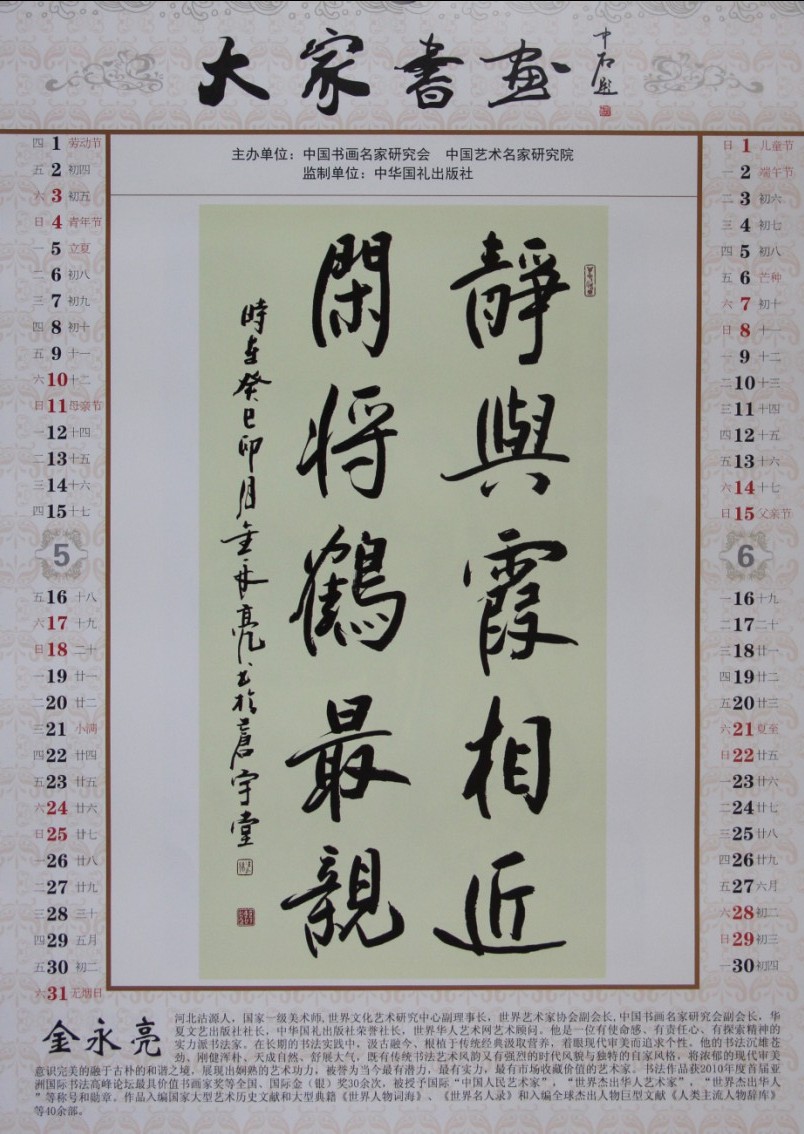 大家書画
中石题
主办单位：中国书画名家研究会　中国艺术名家研究院
监制单位：中华国礼出版社
四 1 劳动节
五 2 初四
六 3 初五
日 4 青年节
一 5 立夏
二 6 初八
三 7 初九
四 8 初十
五 9 十一
六 10 十二
日 11 母亲节
一 12 十四
二 13 十五
三 14 十六
四 15 十七
5
五 16 十八
六 17 十九
日 18 二十
一 19 廿一
二 20 廿二
三 21 小满
四 22 廿四
五 23 廿五
六 24 廿六
日 25 廿七
一 26 廿八
二 27 廿九
三 28 三十
四 29 五月
五 30 初二
六 31 无烟日
靜與霞相近
閑將鶴最親
時在癸巳卯月金永亮书於蒼宇堂
日 1 儿童节
一 2 端午节
二 3 初六
三 4 初七
四 5 初八
五 6 芒种
六 7 初十
日 8 十一
一 9 十二
二 10 十三
三 11 十四
四 12 十五
五 13 十六
六 14 十七
日 15 父亲节
6
一 16 十九
二 17 二十
三 18 廿一
四 19 廿二
五 20 廿三
六 21 夏至
日 22 廿五
一 23 廿六
二 24 廿七
三 25 廿八
四 26 廿九
五 27 六月
六 28 初二
日 29 初三
一 30 初四
金永亮
河北沽源人，国家一级美术师，世界文化艺术研究中心副理事长，世界艺术家协会副会长，中国书画名家研究会副会长，华
夏文艺出版社社长，中华国礼出版社荣誉社长，世界华人艺术网艺术顾问。他是一位有使命感、有责任心、有探索精神的
实力派书法家。在长期的书法实践中，汲古融今、根植于传统经典汲取营养，着眼现代审美而追求个性。他的书法沉雄苍
劲、刚健浑朴、天成自然、舒展大气，既有传统书法艺术风韵又有强烈的时代风貌与独特的自家风格，将浓郁的现代审美
意识完美的融于古朴的和谐之境，展现出娴熟的艺术功力，被誉为当今最有潜力，最有实力，最有市场收藏价值的艺术家。书法作品获2010年度首届亚
洲国际书法高峰论坛最具价值书画家奖等全国、国际金（银）奖30余次，被授予国际“中国人民艺术家”，“世界杰出华人艺术家”，“世界杰出华人
”等称号和勋章。作品入编国家大型艺术历史文献和大型典籍《世界人物词海》、《世界名人录》和入编全球杰出人物巨型文献《人类主流人物辞库》
等40余部。